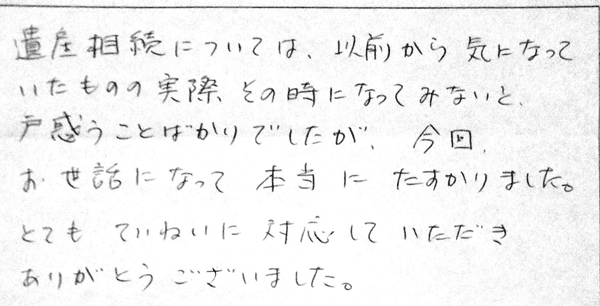 遺産相続については、以前から気になって
いたものの実際その時になってみないと、
戸惑うことばかりでしたが、今回、
お世話になって本当にたすかりました。
とてもていねいに対応していただき
ありがとうございました。